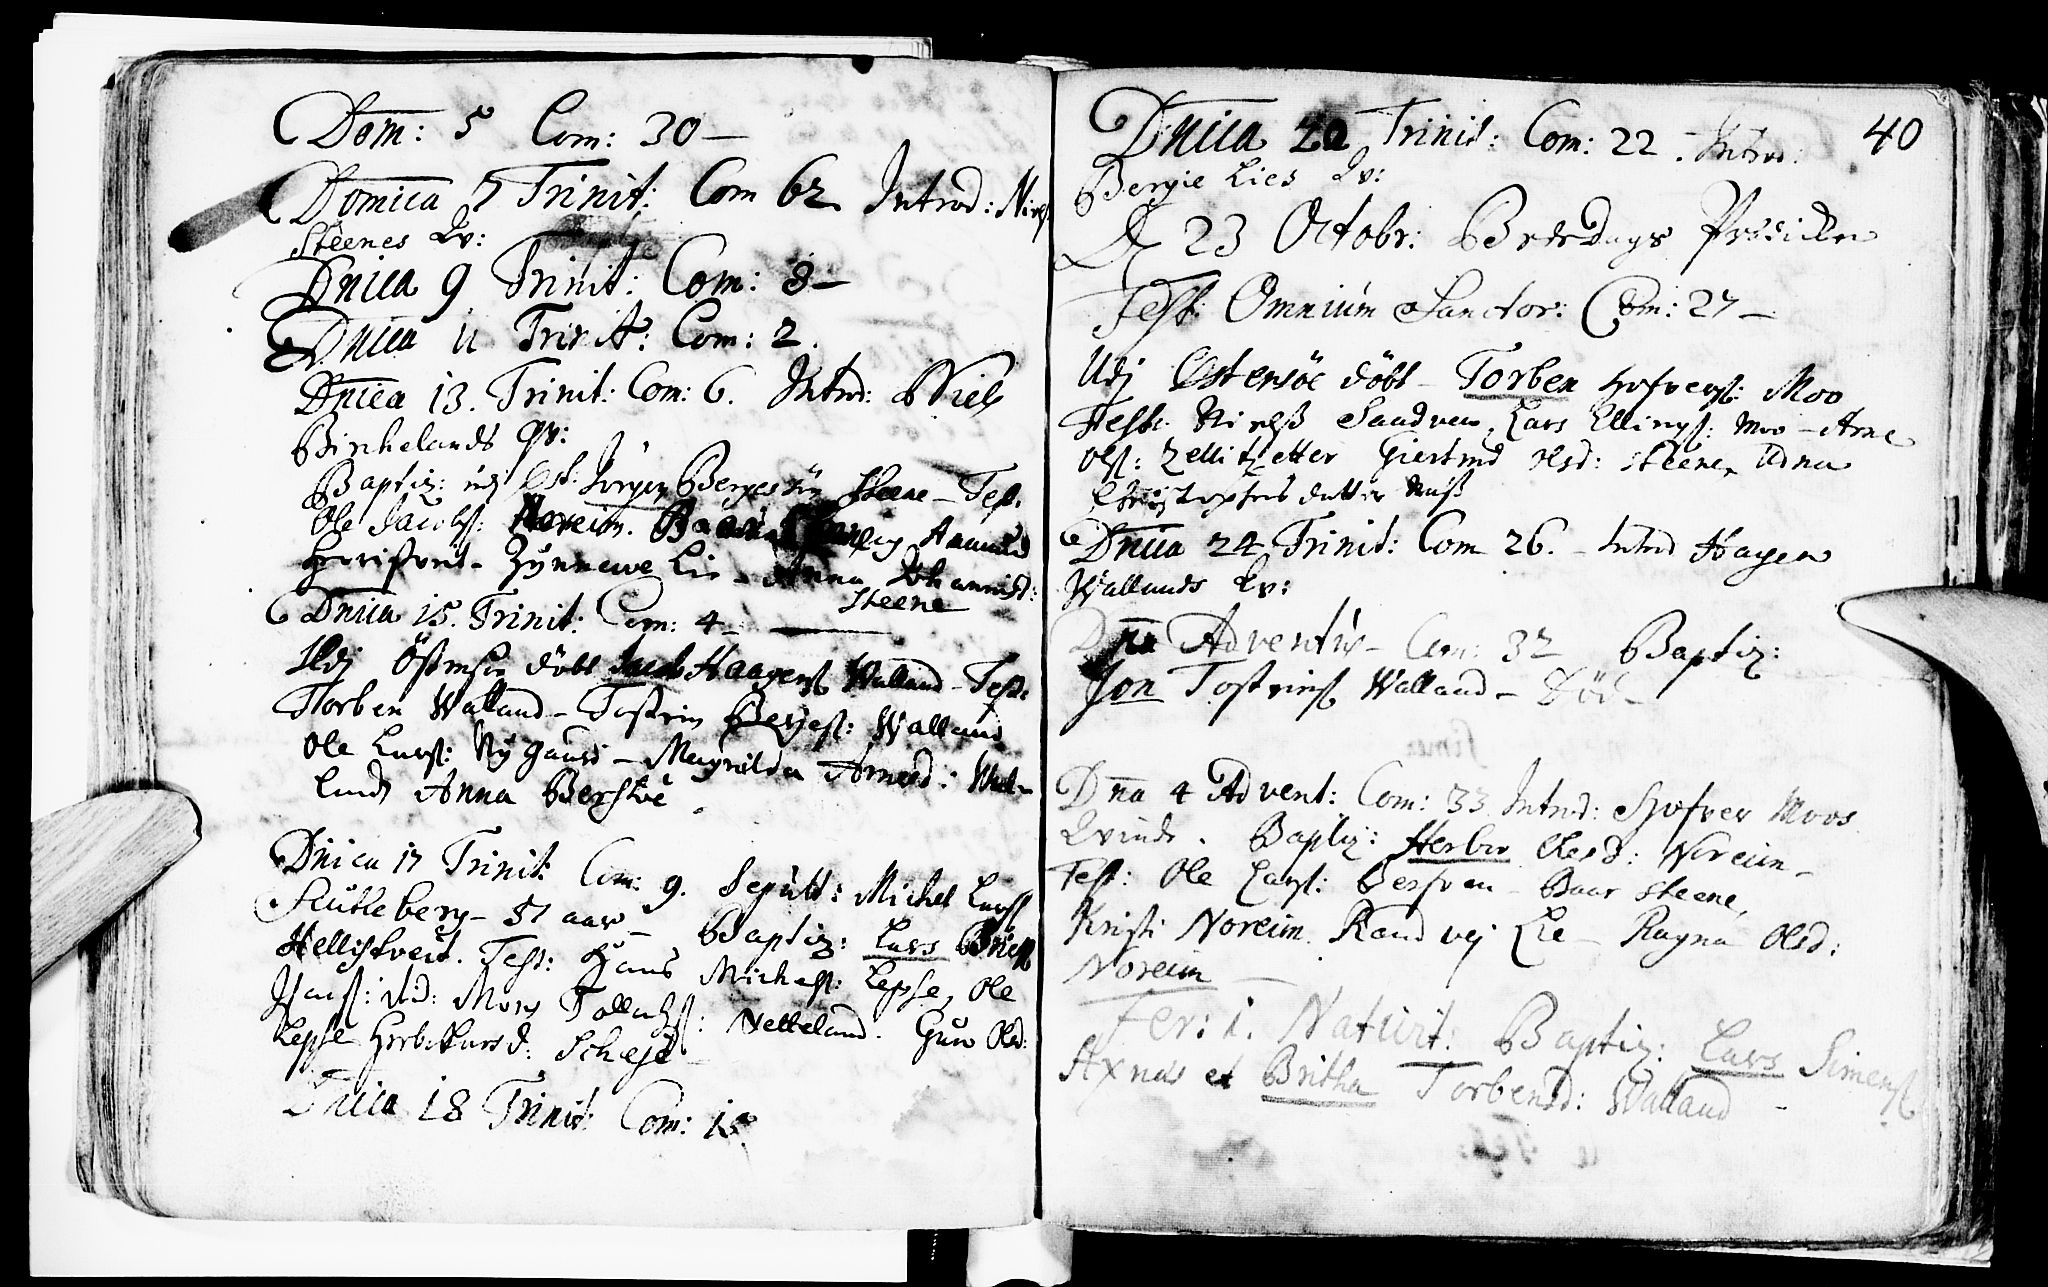 Dom: 5 Com: 30 –
Domica 7 Trinit: Com 62 Introd: Niels
Steenes Qv:
Dnica 9 Trinit: Com: 8 –
Dnica 11 Trinit: Com: 2.
Dnica 13. Trinit: Com: 6. Introd: Niels
Birkelands Qv:
Baptiz: udj Øst: Jørgen Bergesøn Steene – Test:
Ole Jacobs: Noreim. Aamund
Zynnewe Lie – Anna Johannisd:
Steene
Dnica 15. Trinit: Com: 4 –
Udj Östensöe döbt Jacob Haagens Walland – Test:
Torben Walland – Tosten Berges: Walland
Ole Lars: Nygaard – Magnilda Arnesd: Wal-
lands Anna Berstöe.
Dnica 17 Trinit: Com: 9. Sepult: Michel Lars
Skutleberg – 51 aar – Baptiz: Lars
Hellistveit. Test: Hans Michels: Lepsø, Ole
ibd: Mons Tollachs: Netteland. Guro Olsd:
Lepsø Larsd:
Dnica 18 Trinit: Com: 15.
40
Dnica 20 Trinit: Com: 22. – Introd:
Bergie Lies Qv:
D 23 Octobr: Beredags Prædicken
Fest: Omnium Sanctor: Com: 27 –
Udj Östensöe döbt – Torben Moo
Test: Niels Sandven, Lars Ellings: Moo – Arne
Ols: Giertrud Olsd: Steene, Adna
Christophers datter
Dnica 24 Trinit: Com 26. – Introd Hagen
Wallands Qv:
Dna Adventus – Com: 32 Baptiz:
Jon Tostens Walland – Död –
Dna 4 Advent: Com: 33 Introd: Moos
Qvinde. Baptiz: Herbor Olesd: Noreim –
Test: Ole Lars: Berven – Baar Steene,
Kristi Noreim. Randvej Lie – Ragna Olsd:
Noreim –
Fer: 1. Nativit: Baptiz: Lars Simens
Axnes et Britha Torbensd: Walland –